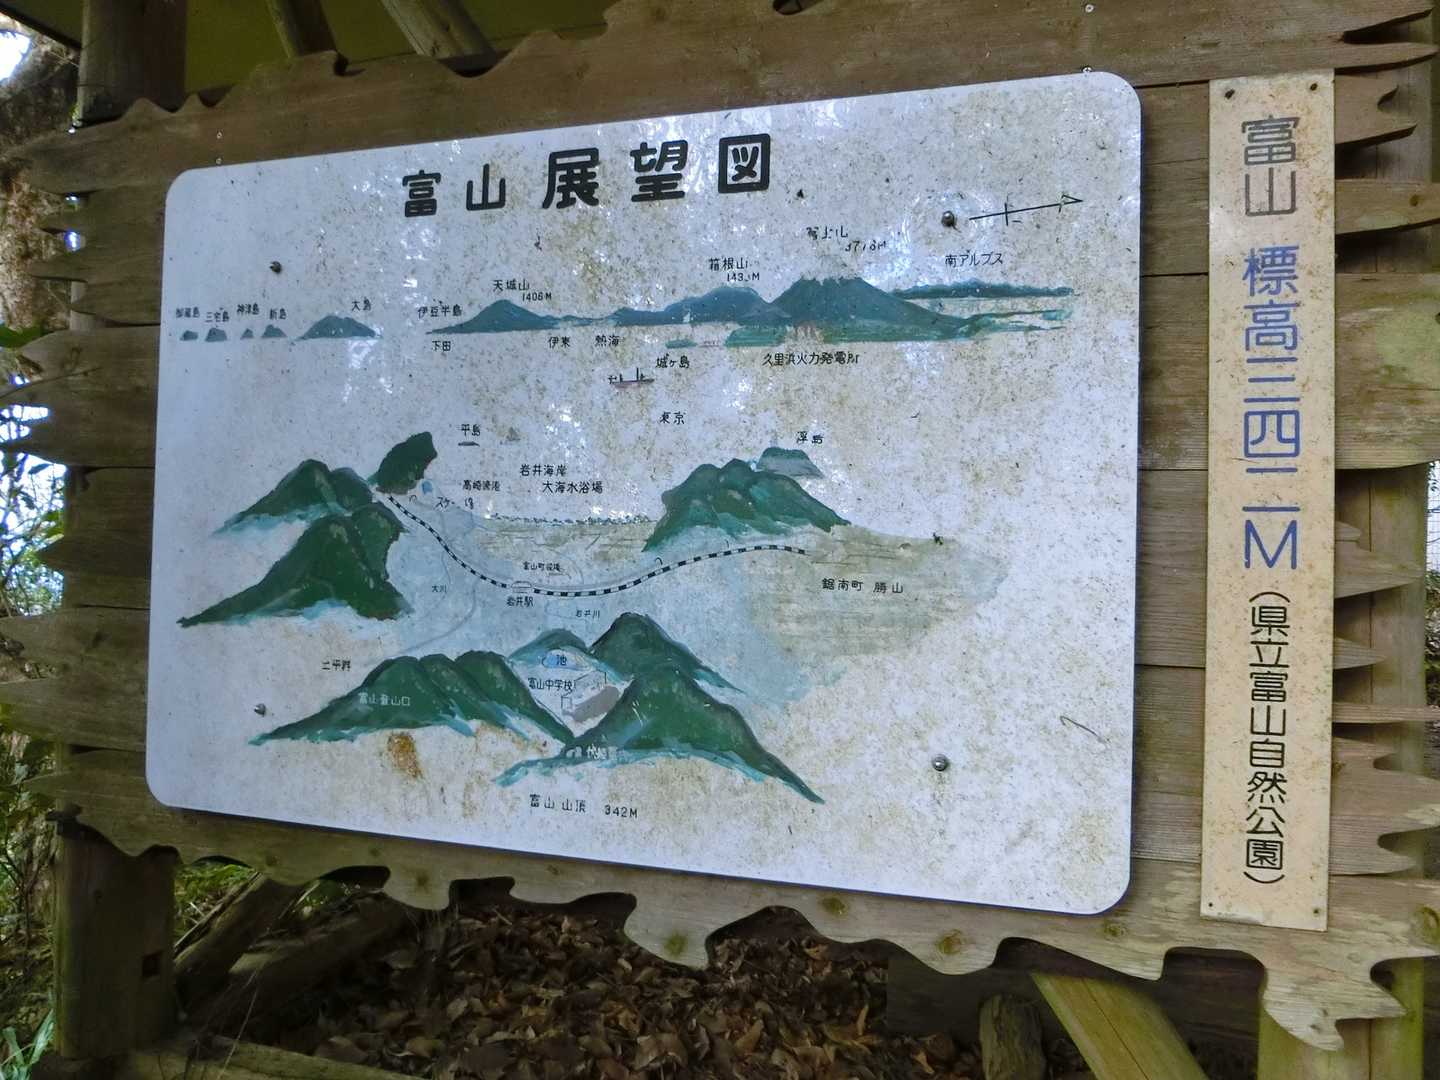 富山 展望図
富士山
3776M
南アルプス
箱根山
天城山
1406M
御蔵島
三宅島
神津島
新島
大島
伊豆半島
下田
伊東
熱海
城ヶ島
久里浜火力発電所
東京
平島
浮島
岩井海岸
大海水浴場
高崎漁港
富山町役場
大川
岩井駅
岩井川
鋸南町 勝山
池
富山中学校
富山登山口
富山山頂 342M
富山 標高三四二M(県立富山自然公園)